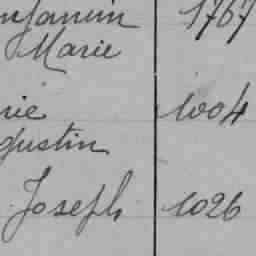 njamin 1767
Marie
rie 1004
gustin
Joseph 1026